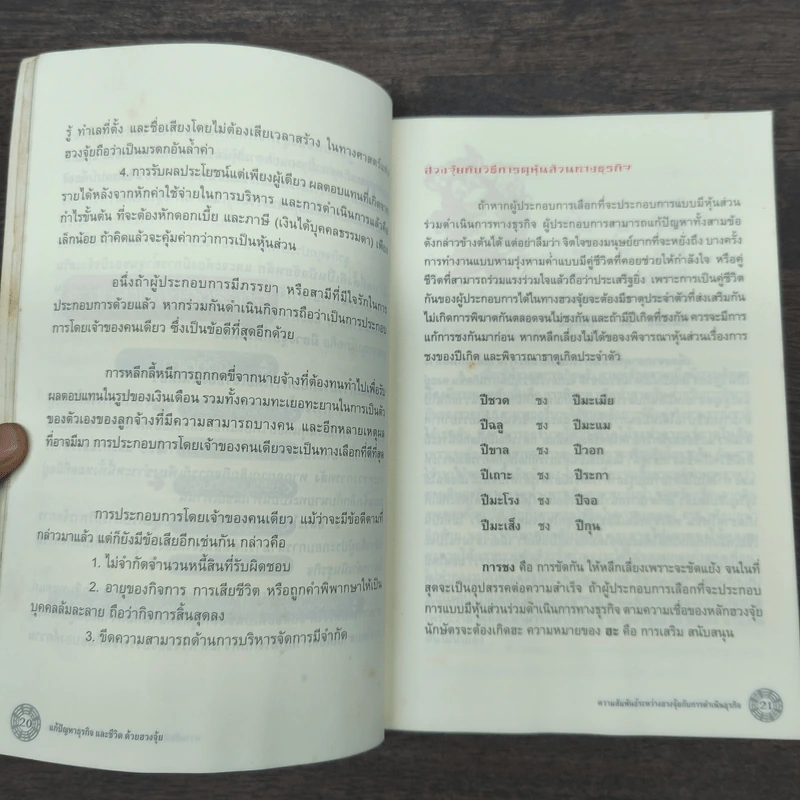 รู้ ทำเลที่ตั้ง และชื่อเสียงโดยไม่ต้องเสียเวลาสร้าง ในทางศาสตร์
ฮวงจุ้ยถือว่าเป็นมรดกอันล้ำค่า
4. การรับผลประโยชน์แต่เพียงผู้เดียว ผลตอบแทนที่เกิดจาก
รายได้หลังจากหักค่าใช้จ่ายในการบริหาร และการดำเนินการแล้วคือ
กำไรขั้นต้น ที่จะต้องหักดอกเบี้ย และภาษี (เงินได้บุคคลธรรมดา) เพียง
เล็กน้อย ถ้าคิดแล้วจะคุ้มค่ากว่าการเป็นหุ้นส่วน
อนึ่งถ้าผู้ประกอบการมีภรรยา หรือสามีที่มีใจรักในการ
ประกอบการด้วยแล้ว หากร่วมกันดำเนินกิจการถือว่าเป็นการประกอบ
การโดยเจ้าของคนเดียว ซึ่งเป็นข้อดีที่สุดอีกด้วย
การหลีกลี้หนีการถูกกดขี่จากนายจ้างที่ต้องทนทำไปเพื่อรับ
ผลตอบแทนในรูปของเงินเดือน รวมทั้งความทะเยอทะยานในการเป็นตัว
ของตัวเองของลูกจ้างที่มีความสามารถบางคน และอีกหลายเหตุผล
ที่อาจมีมา การประกอบการโดยเจ้าของคนเดียวจะเป็นทางเลือกที่ดีที่สุด
การประกอบการโดยเจ้าของคนเดียว แม้ว่าจะมีข้อดีตามที่
กล่าวมาแล้ว แต่ก็ยังมีข้อเสียอีกเช่นกัน กล่าวคือ
1. ไม่จำกัดจำนวนหนี้สินที่รับผิดชอบ
2. อายุของกิจการ การเสียชีวิต หรือถูกคำพิพากษาให้เป็น
บุคคลล้มละลาย ถือว่ากิจการสิ้นสุดลง
3. ขีดความสามารถด้านการบริหารจัดการมีจำกัด
20 แก้ปัญหาธุรกิจ และชีวิต ด้วยฮวงจุ้ย
ฮวงจุ้ยกับวิธีการดูหุ้นส่วนทางธุรกิจ
ถ้าหากผู้ประกอบการเลือกที่จะประกอบการแบบมีหุ้นส่วน
ร่วมดำเนินการทางธุรกิจ ผู้ประกอบการสามารถแก้ปัญหาทั้งสามข้อ
ดังกล่าวข้างต้นได้ แต่อย่าลืมว่า จิตใจของมนุษย์ยากที่จะหยั่งถึง บางครั้ง
การทำงานแบบหามรุ่งหามค่ำแบบมีคู่ชีวิตที่คอยช่วยให้กำลังใจ หรือคู่
ชีวิตที่สามารถร่วมแรงร่วมใจแล้วถือว่าประเสริฐยิ่ง เพราะการเป็นคู่ชีวิต
กันของผู้ประกอบการได้ในทางฮวงจุ้ยจะต้องมีธาตุประจำตัวที่ส่งเสริมกัน
ไม่เกิดการพิฆาตกันตลอดจนไม่ชงกัน และถ้ามีปีเกิดที่ชงกัน ควรจะมีการ
แก้การชงกันมาก่อน หากหลีกเลี่ยงไม่ได้ขอจงพิจารณาหุ้นส่วนเรื่องการ
ชงของปีเกิด และพิจารณาธาตุเกิดประจำตัว
ปีชวด ชง ปีมะเมีย
ปีฉลู ชง ปีมะแม
ปีขาล ชง ปีวอก
ปีเถาะ ชง ปีระกา
ปีมะโรง ชง ปีจอ
ปีมะเส็ง ชง ปีกุน
การชง คือ การขัดกัน ให้หลีกเลี่ยงเพราะจะขัดแย้ง จนในที่
สุดจะเป็นอุปสรรคต่อความสำเร็จ ถ้าผู้ประกอบการเลือกที่จะประกอบ
การแบบมีหุ้นส่วนร่วมดำเนินการทางธุรกิจ ตามความเชื่อของหลักฮวงจุ้ย
นักษัตรจะต้องเกิดฮะ ความหมายของ ฮะ คือ การเสริม สนับสนุน
ความสัมพันธ์ระหว่างฮวงจุ้ยกับการดำเนินธุรกิจ 21